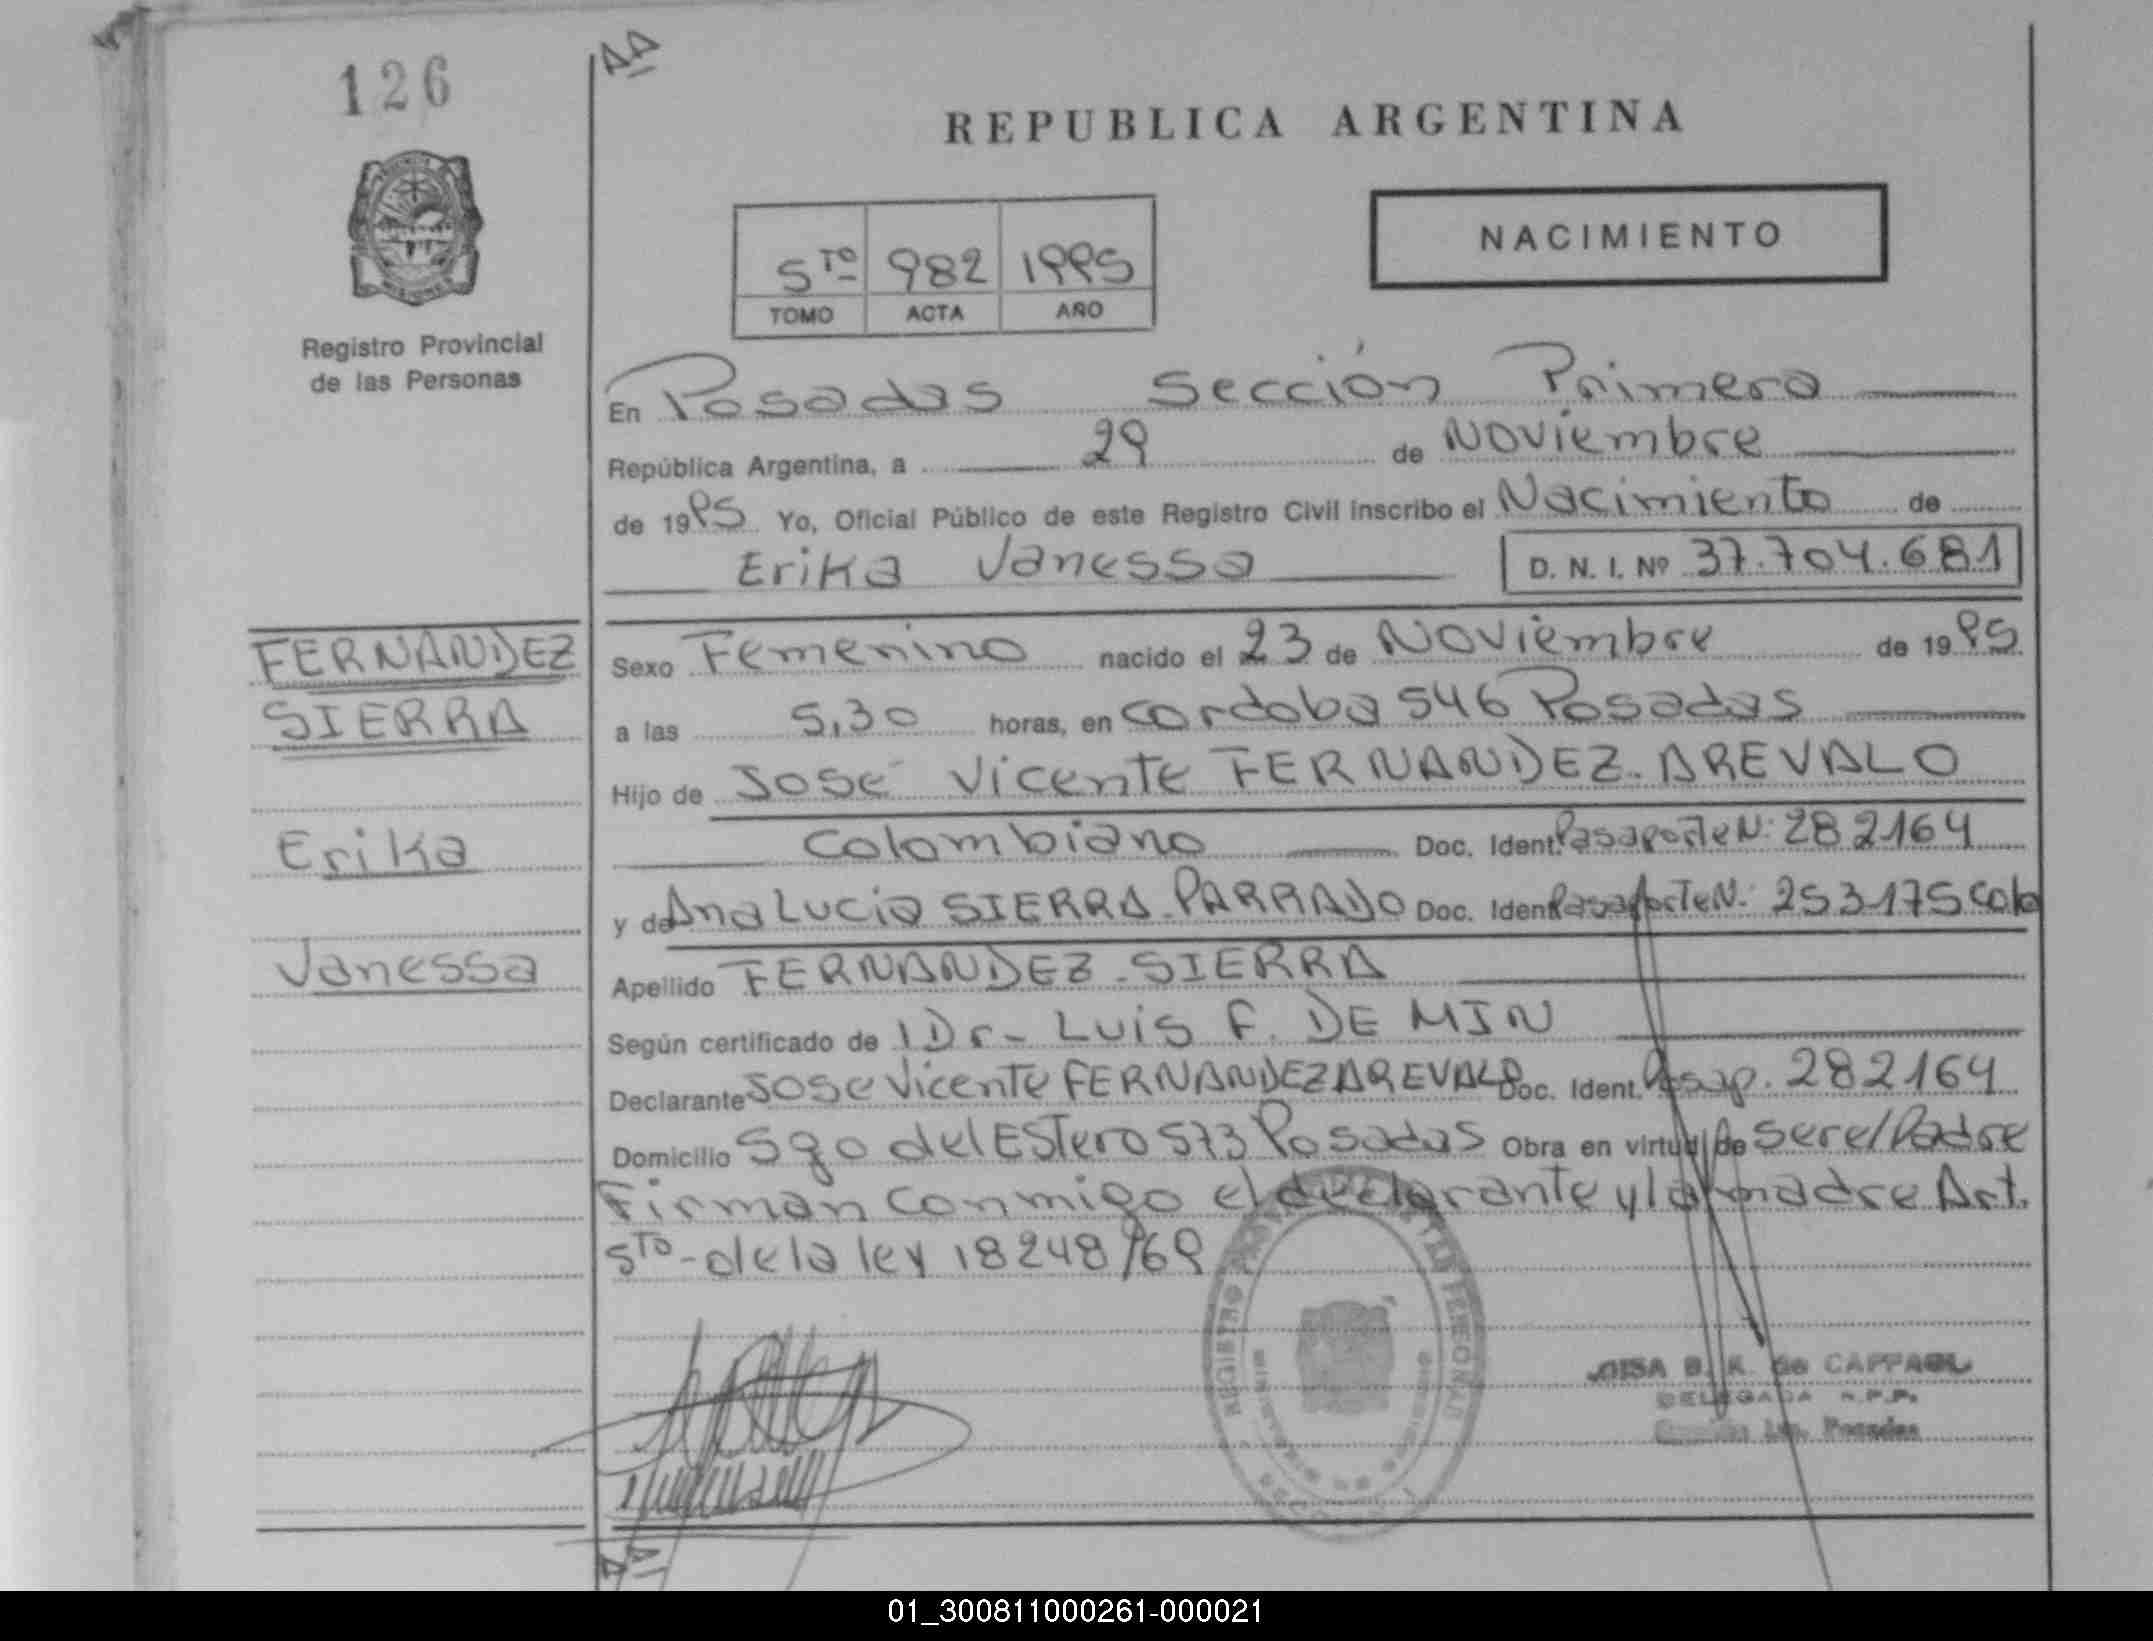 126
REPUBLICA ARGENTINA
NACIMIENTO
5to 982 1995
TOMO ACTA AÑO
Registro Provincial
de las Personas
En Posadas Sección Primera
República Argentina, a 29 de Noviembre
de 1995 Yo, Oficial Público de este Registro Civil inscribo el Nacimiento de
Erika Vanessa D. N. I. Nº 37.704.681
FERNANDEZ
SIERRA
Erika
Vanessa
Sexo Femenino nacido el 23 de Noviembre de 1995
a las 5,30 horas, en Cordoba 546 Posadas
Hijo de José Vicente FERNANDEZ. AREVALO
Colombiano Doc. Ident. Pasaporte N: 282164
y de Ana Lucia SIERRA. PARRADO Doc. Ident. Pasaporte N: 253175 Colo
Apellido FERNANDEZ-SIERRA
Según certificado de 1 Dr- Luis F. DE MIN
Declarante Jose Vicente FERNANDEZ AREVALO Doc. Ident. Pasap. 282164
Domicilio Sgo del Estero 573 Posadas Obra en virtud de ser el Padre
Firman conmigo el declarante y la madre Art.
5to-de la ley 18248/69
REGISTRO PROVINCIAL DE LAS PERSONAS
MINISTERIO DE GOBIERNO
MISIONES
B. K. de
DELEGADA R.P.P.
Sección 1ra. Posadas
01_300811000261-000021